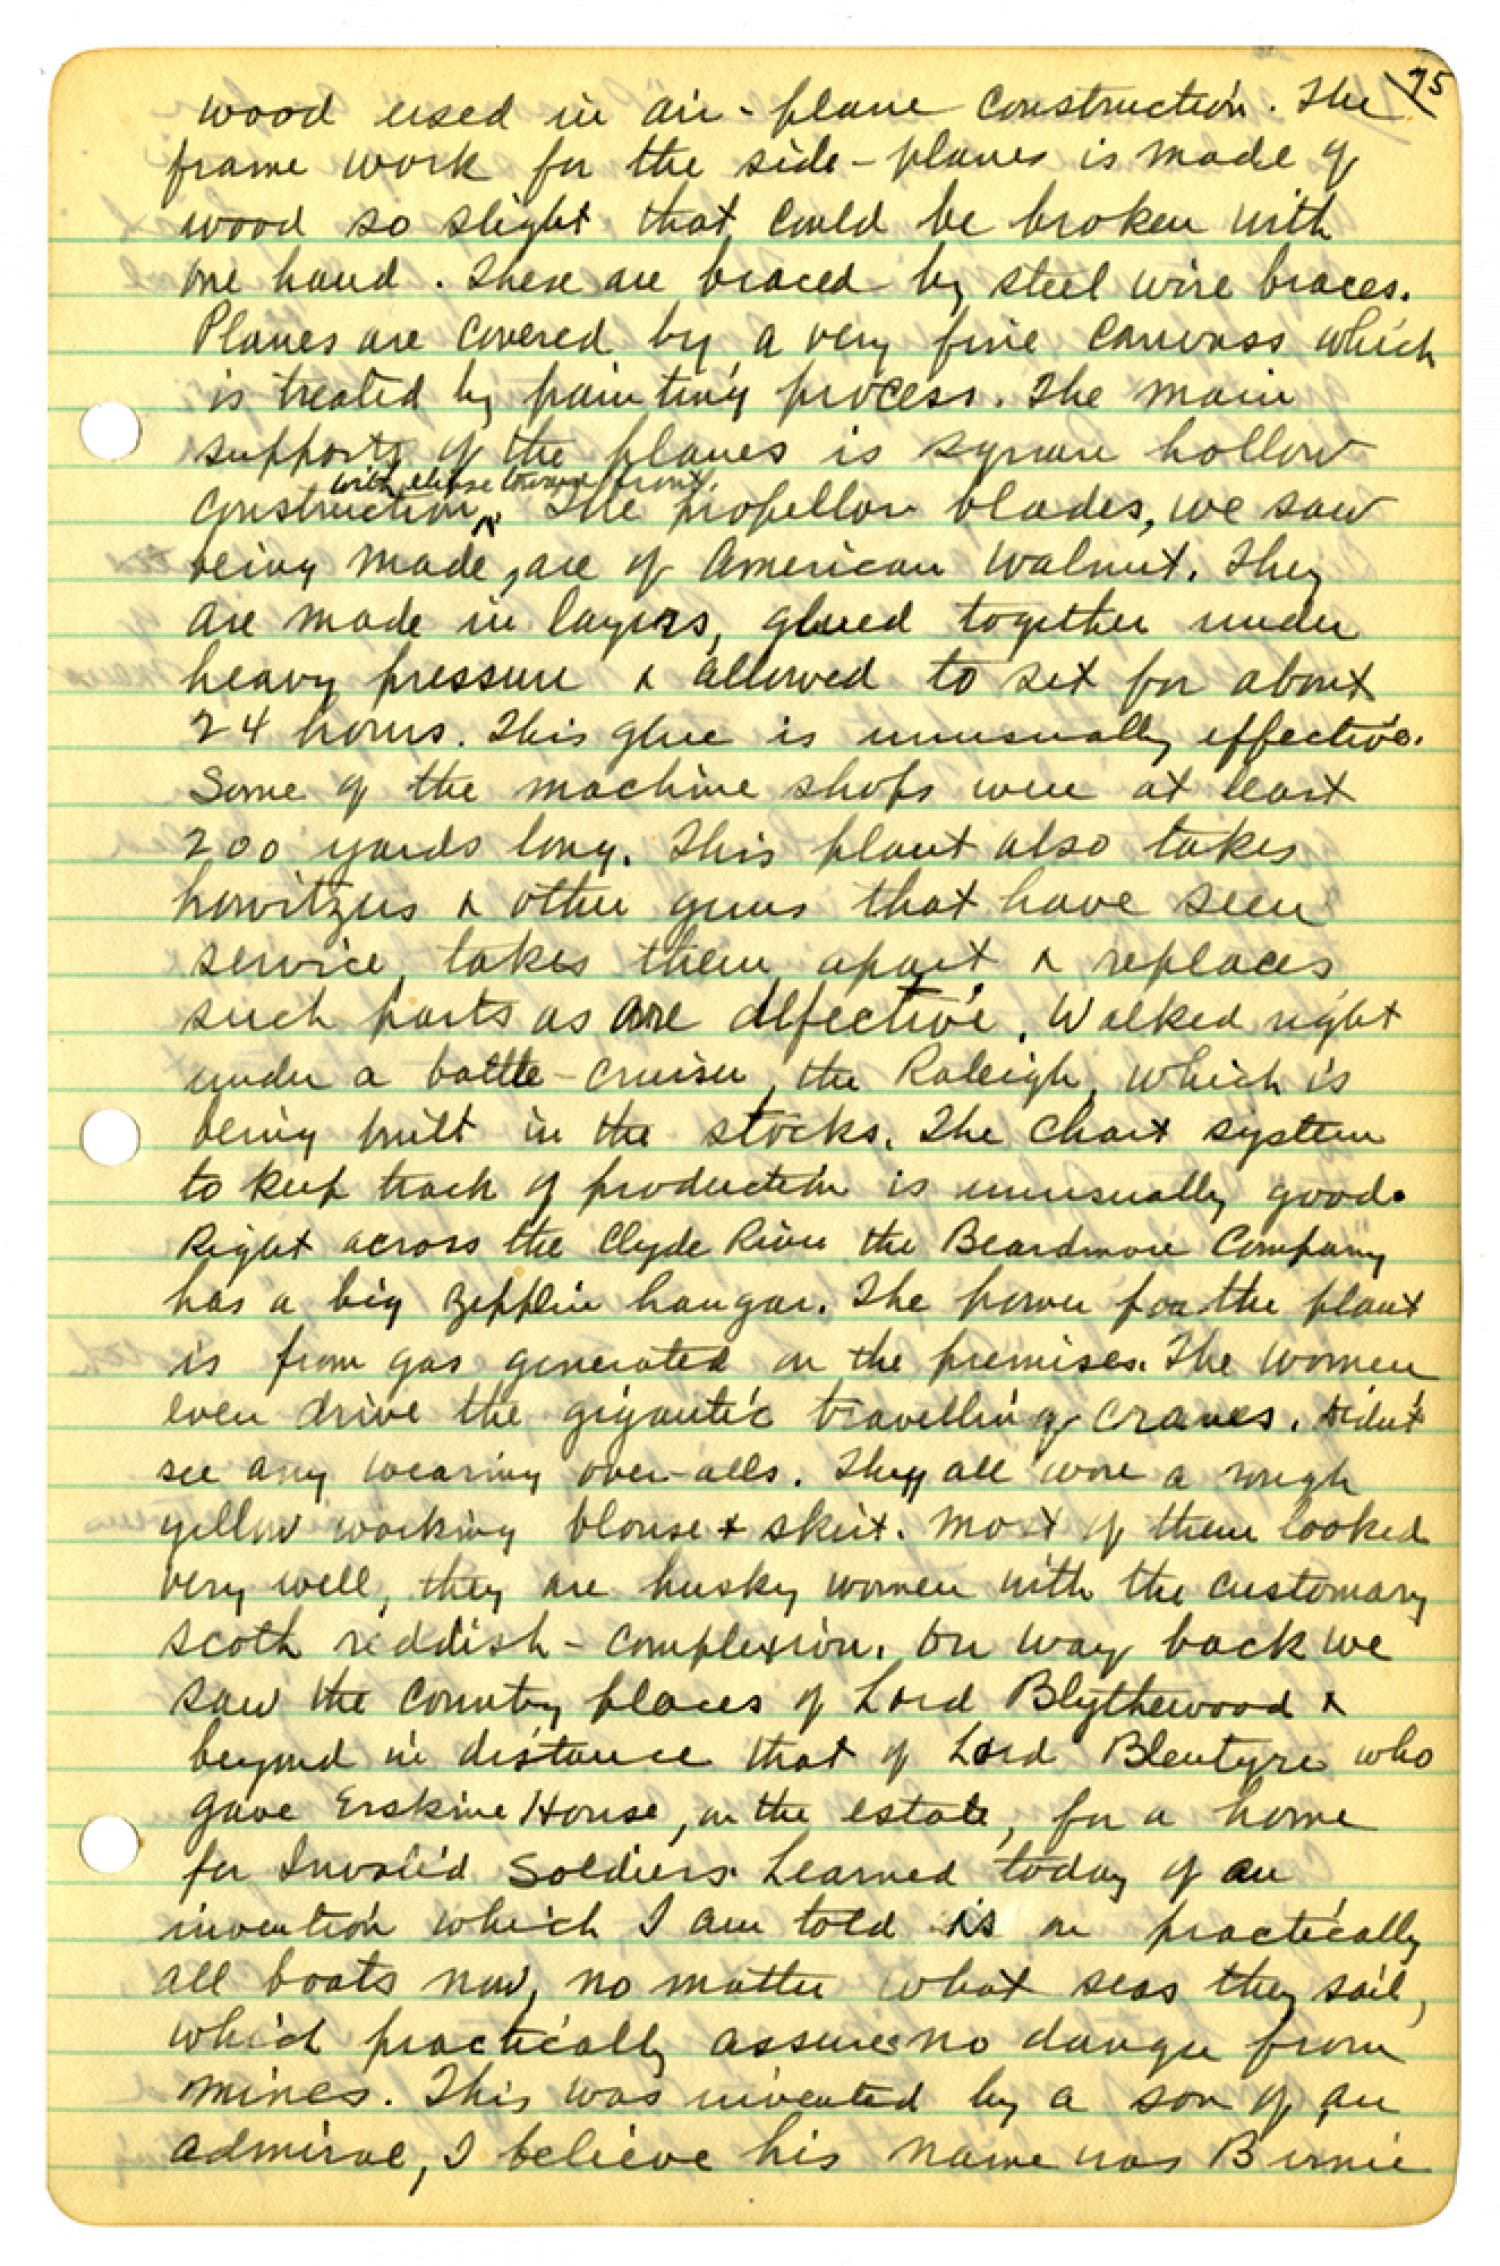 75
wood used in air-plane construction. The
frame work for the side-planes is made of
wood so slight that could be broken with
one hand. These are braced by steel wire braces.
Planes are covered by a very fine canvass which
is treated by painting process. The main
supports of the planes is square hollow
with elipse toward front.
construction. The propellor blades, we saw
being made, are of American walnut. They
are made in layers, glued together under
heavy pressure & allowed to set for about
24 hours. This glue is unusually effective.
Some of the machine shops were at least
200 yards long. This plant also takes
howitzers & other guns that have seen
service, takes them apart & replaces
such parts as are defective. Walked right
under a battle-cruiser, the Raleigh, which is
being built in the stocks. The chart system
to keep track of production is unusually good.
Right across the Clyde River the Beardmore Company
has a big Zepplin hangar. The power for the plant
is from gas generated on the premises. The women
even drive the gigantic travelling cranes. Didn't
see any wearing over-alls. They all wore a rough
yellow working blouse & skirt. Most of them looked
very well, they are husky women with the customary
scoth reddish-complexion. On way back we
saw the country places of Lord Blythewood &
beyond in distance that of Lord Blentyre who
gave Erskine House, on the estate, for a home
for Invalid Soldiers. Learned today of an
invention which I am told is on practically
all boats now, no matter what seas they sail,
which practically assures no danger from
mines. This was invented by a son of an
admiral, I believe his name was Birnie